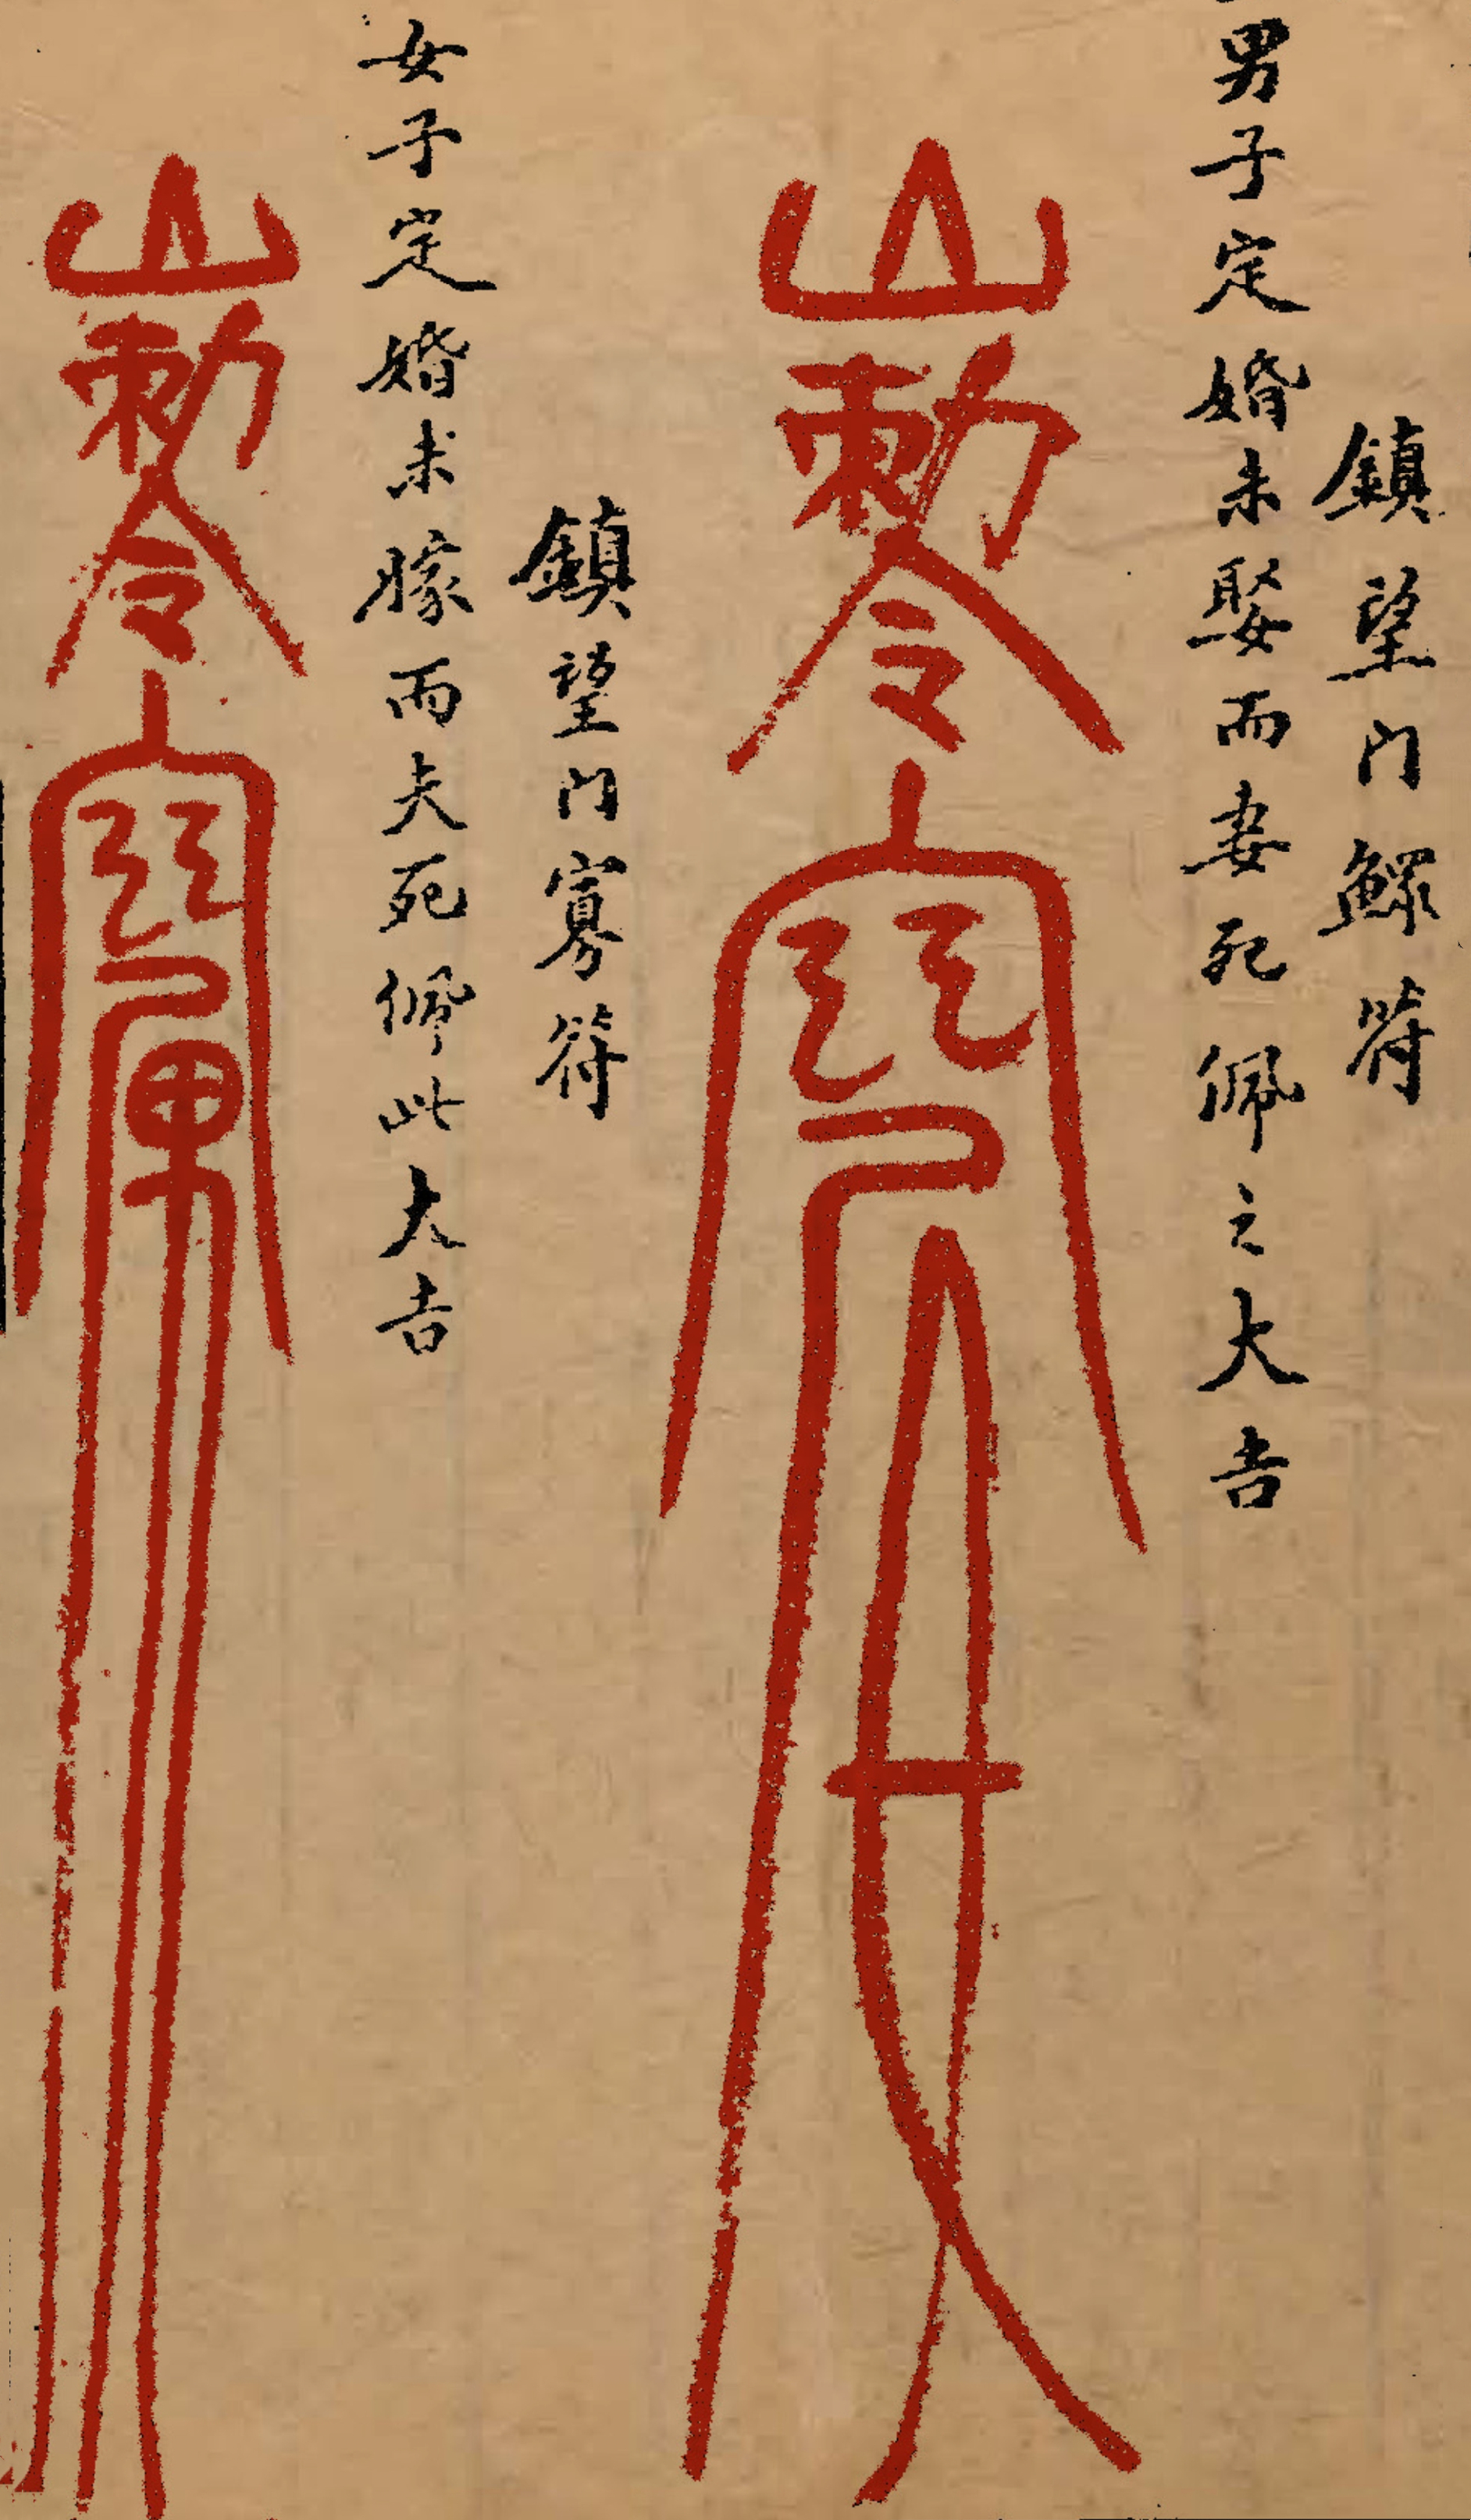 鎮望门鰥符
男子定婚未娶而妻死佩之大吉
敕令
鎮望门寡符
女子定婚未嫁而夫死佩此大吉
敕令